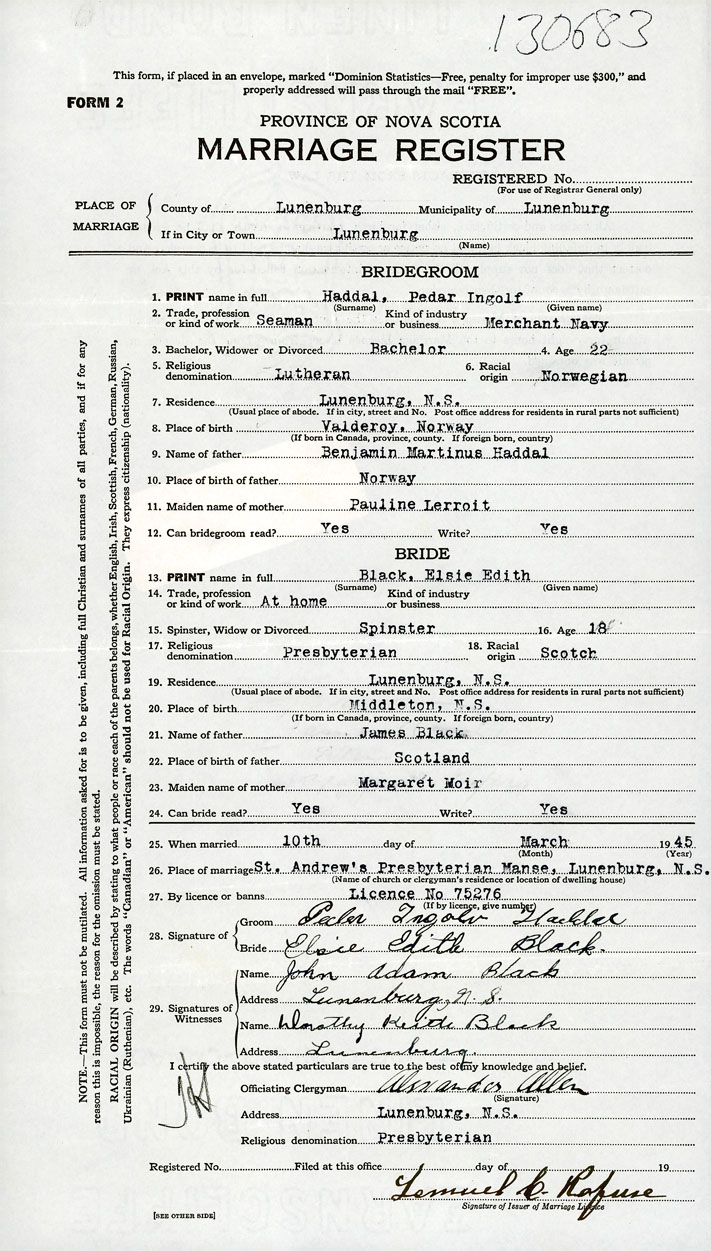 130683
This form, if placed in an envelope, marked "Dominion Statistics—Free, penalty for improper use $300," and
properly addressed will pass through the mail "FREE".
FORM 2
PROVINCE OF NOVA SCOTIA
MARRIAGE REGISTER
REGISTERED No.
(For use of Registrar General only)
PLACE OF MARRIAGE
County of Lunenburg Municipality of Lunenburg
If in City or Town Lunenburg
(Name)
BRIDEGROOM
1. PRINT name in full Haddal, Pedar Ingolf
(Surname) (Given name)
2. Trade, profession or kind of work Seaman Kind of industry or business Merchant Navy
3. Bachelor, Widower or Divorced Bachelor 4. Age 22
5. Religious denomination Lutheran 6. Racial origin Norwegian
7. Residence Lunenburg, N.S.
(Usual place of abode. If in city, street and No. Post office address for residents in rural parts not sufficient)
8. Place of birth Valderoy, Norway
(If born in Canada, province, county. If foreign born, country)
9. Name of father Benjamin Martinus Haddal
10. Place of birth of father Norway
11. Maiden name of mother Pauline Lerroit
12. Can bridegroom read? Yes Write? Yes
BRIDE
13. PRINT name in full Black, Elsie Edith
(Surname) (Given name)
14. Trade, profession or kind of work At home Kind of industry or business
15. Spinster, Widow or Divorced Spinster 16. Age 18
17. Religious denomination Presbyterian 18. Racial origin Scotch
19. Residence Lunenburg, N.S.
(Usual place of abode. If in city, street and No. Post office address for residents in rural parts not sufficient)
20. Place of birth Middleton, N.S.
(If born in Canada, province, county. If foreign born, country)
21. Name of father James Black
22. Place of birth of father Scotland
23. Maiden name of mother Margaret Moir
24. Can bride read? Yes Write? Yes
25. When married 10th day of March 1945
(Month) (Year)
26. Place of marriage St. Andrew's Presbyterian Manse, Lunenburg, N.S.
(Name of church or clergyman's residence or location of dwelling house)
27. By licence or banns Licence No 75276
(If by licence, give number)
28. Signature of
Groom Peder Ingolv Haddal
Bride Elsie Edith Black.
29. Signatures of Witnesses
Name John Adam Black
Address Lunenburg, N.S.
Name Dorothy Black
Address Lunenburg.
I certify the above stated particulars are true to the best of my knowledge and belief.
Officiating Clergyman Alexander Allen
(Signature)
Address Lunenburg, N.S.
Religious denomination Presbyterian
Registered No. Filed at this office day of 19
Lemuel C. Rofuse
Signature of Issuer of Marriage Licence
[SEE OTHER SIDE]
NOTE.—This form must not be mutilated. All information asked for is to be given, including full Christian and surnames of all parties, and if for any
reason this is impossible, the reason for the omission must be stated.
RACIAL ORIGIN will be described by stating to what people or race each of the parents belongs, whether English, Irish, Scottish, French, German, Russian,
Ukrainian (Ruthenian), etc. The words "Canadian" or "American" should not be used for Racial Origin. They express citizenship (nationality).